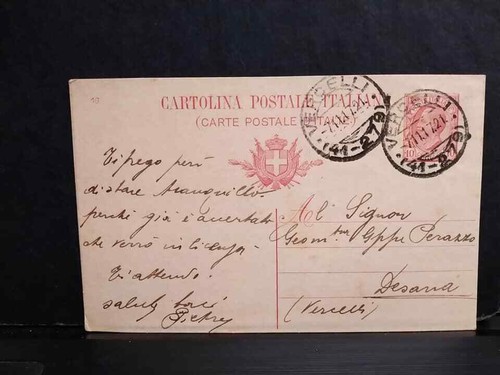 10
CARTOLINA POSTALE ITALIANA
(CARTE POSTALE D'ITALIE)
VERCELLI
(41-279)
VERCELLI
(41-279)
Ti prego però
di stare tranquillo
perché già è accertato
che verrò in licenza.
Ti attendo.
saluti baci
Pietro
Al Signor
Geom. Gppe Perazzo
Desana
(Vercelli)